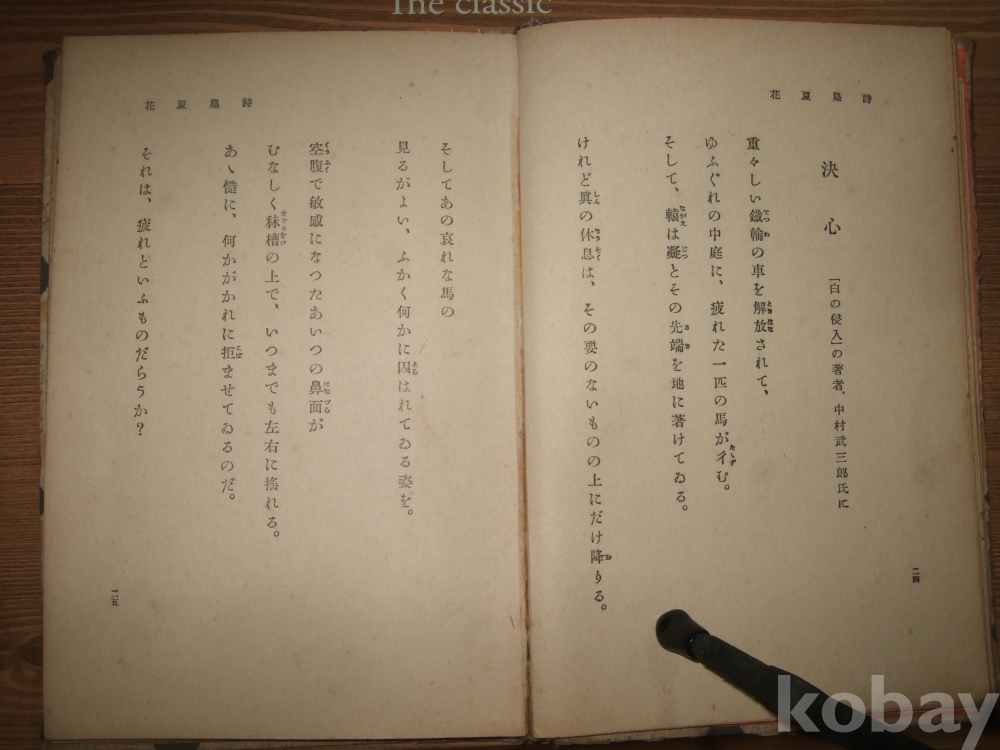 The classic
詩集夏花
決心
［「白の侵入」の著者、中村武三郎氏に
重々しい鐵輪の車を解放されて、
ゆふぐれの中庭に、疲れた一匹の馬が彳む。
そして、轅は凝とその先端を地に著けてゐる。
けれど眞の休息は、その要のないものの上にだけ降りる。
二四
詩集夏花
そしてあの哀れな馬の
見るがよい、ふかく何かに囚はれてゐる姿を。
空腹で敏感になつたあいつの鼻面が
むなしく秣槽の上で、いつまでも左右に搖れる。
あゝ慥に、何かがかれに拒ませてゐるのだ。
それは、疲れといふものだらうか？
二五
kobay